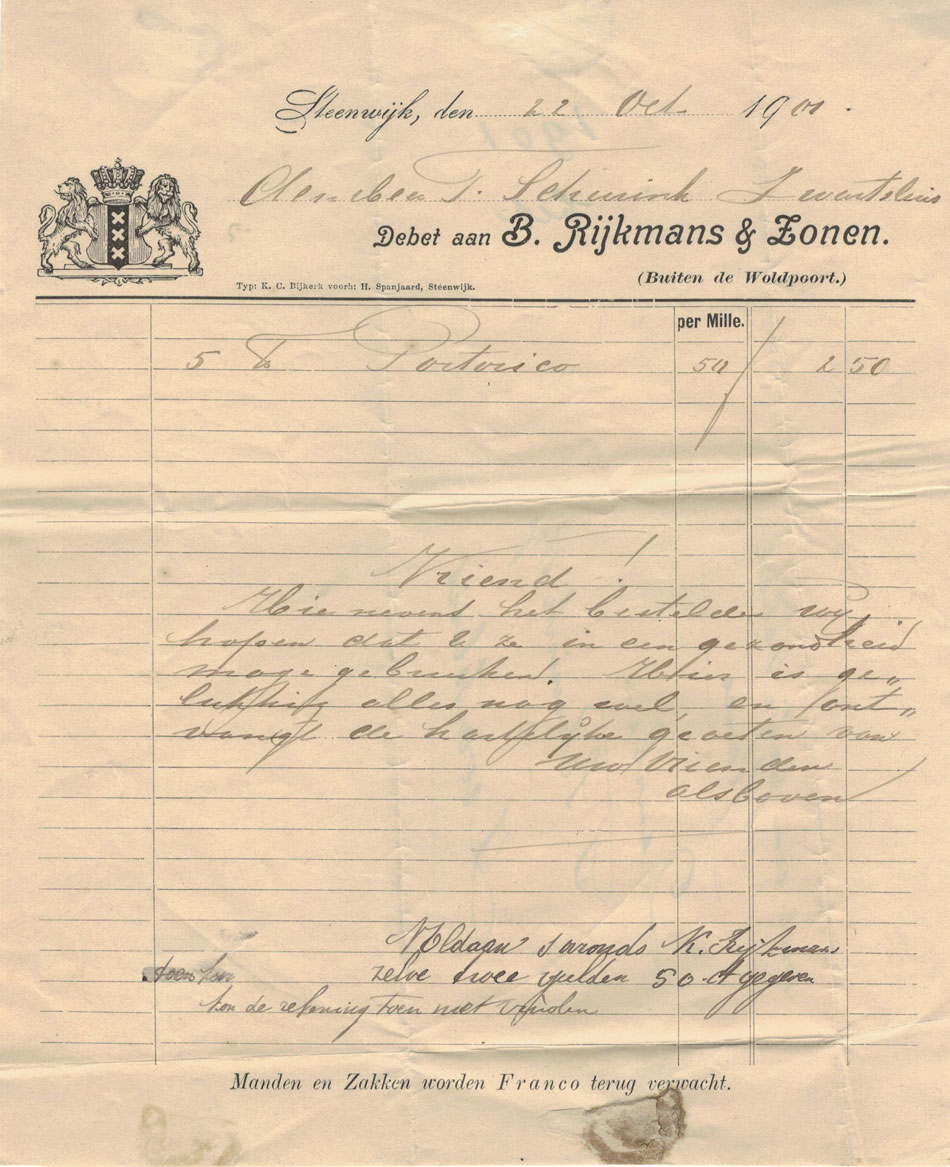 Steenwijk, den 22 Oct 1901.
T. Schurink
Debet aan B. Rijkmans & Zonen.
(Buiten de Woldpoort.)
Typ: K. C. Bijkerk voorh: H. Spanjaard, Steenwijk.
per Mille.
5 Portorico 50 2 50
Vriend!
Hier nevens het bestelde wij
hopen dat U ze in een gezondheid
moge gebruiken. Hier is ge„
lukkig alles nog wel, en ont„
vangt de hartelijke groeten van
Uw Vrienden
alsboven
Voldaan s'avonds K. Rijkmans
zelve twee gulden 50 ct gegeven
toen kon
kon de rekening toen niet vinden
Manden en Zakken worden Franco terug verwacht.